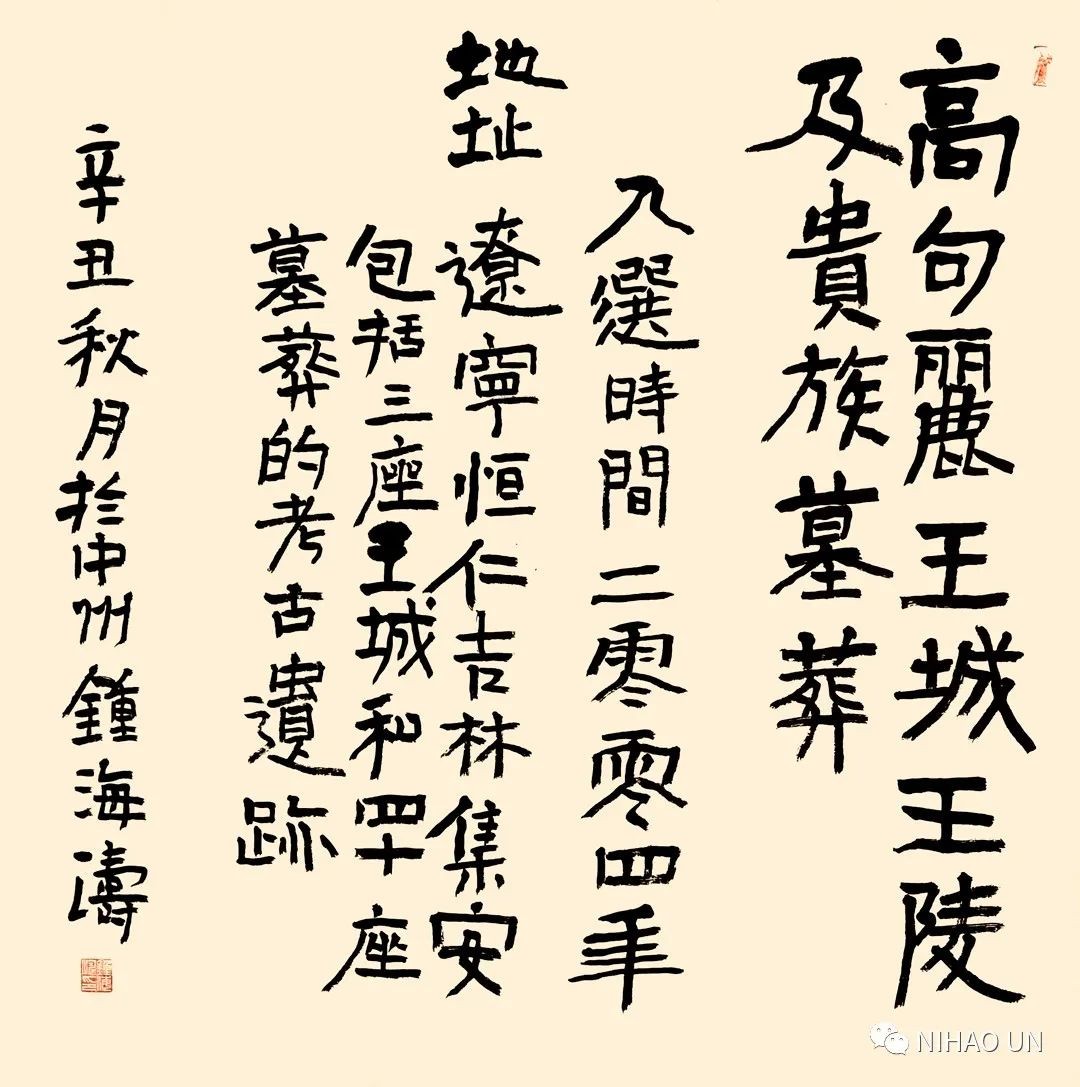 高句麗王城王陵
及貴族墓葬
入選時間二零零四年
地址 遼寧恒仁吉林集安
包括三座王城和四十座
墓葬的考古遺跡
辛丑秋月於中州鍾海濤
NIHAO UN